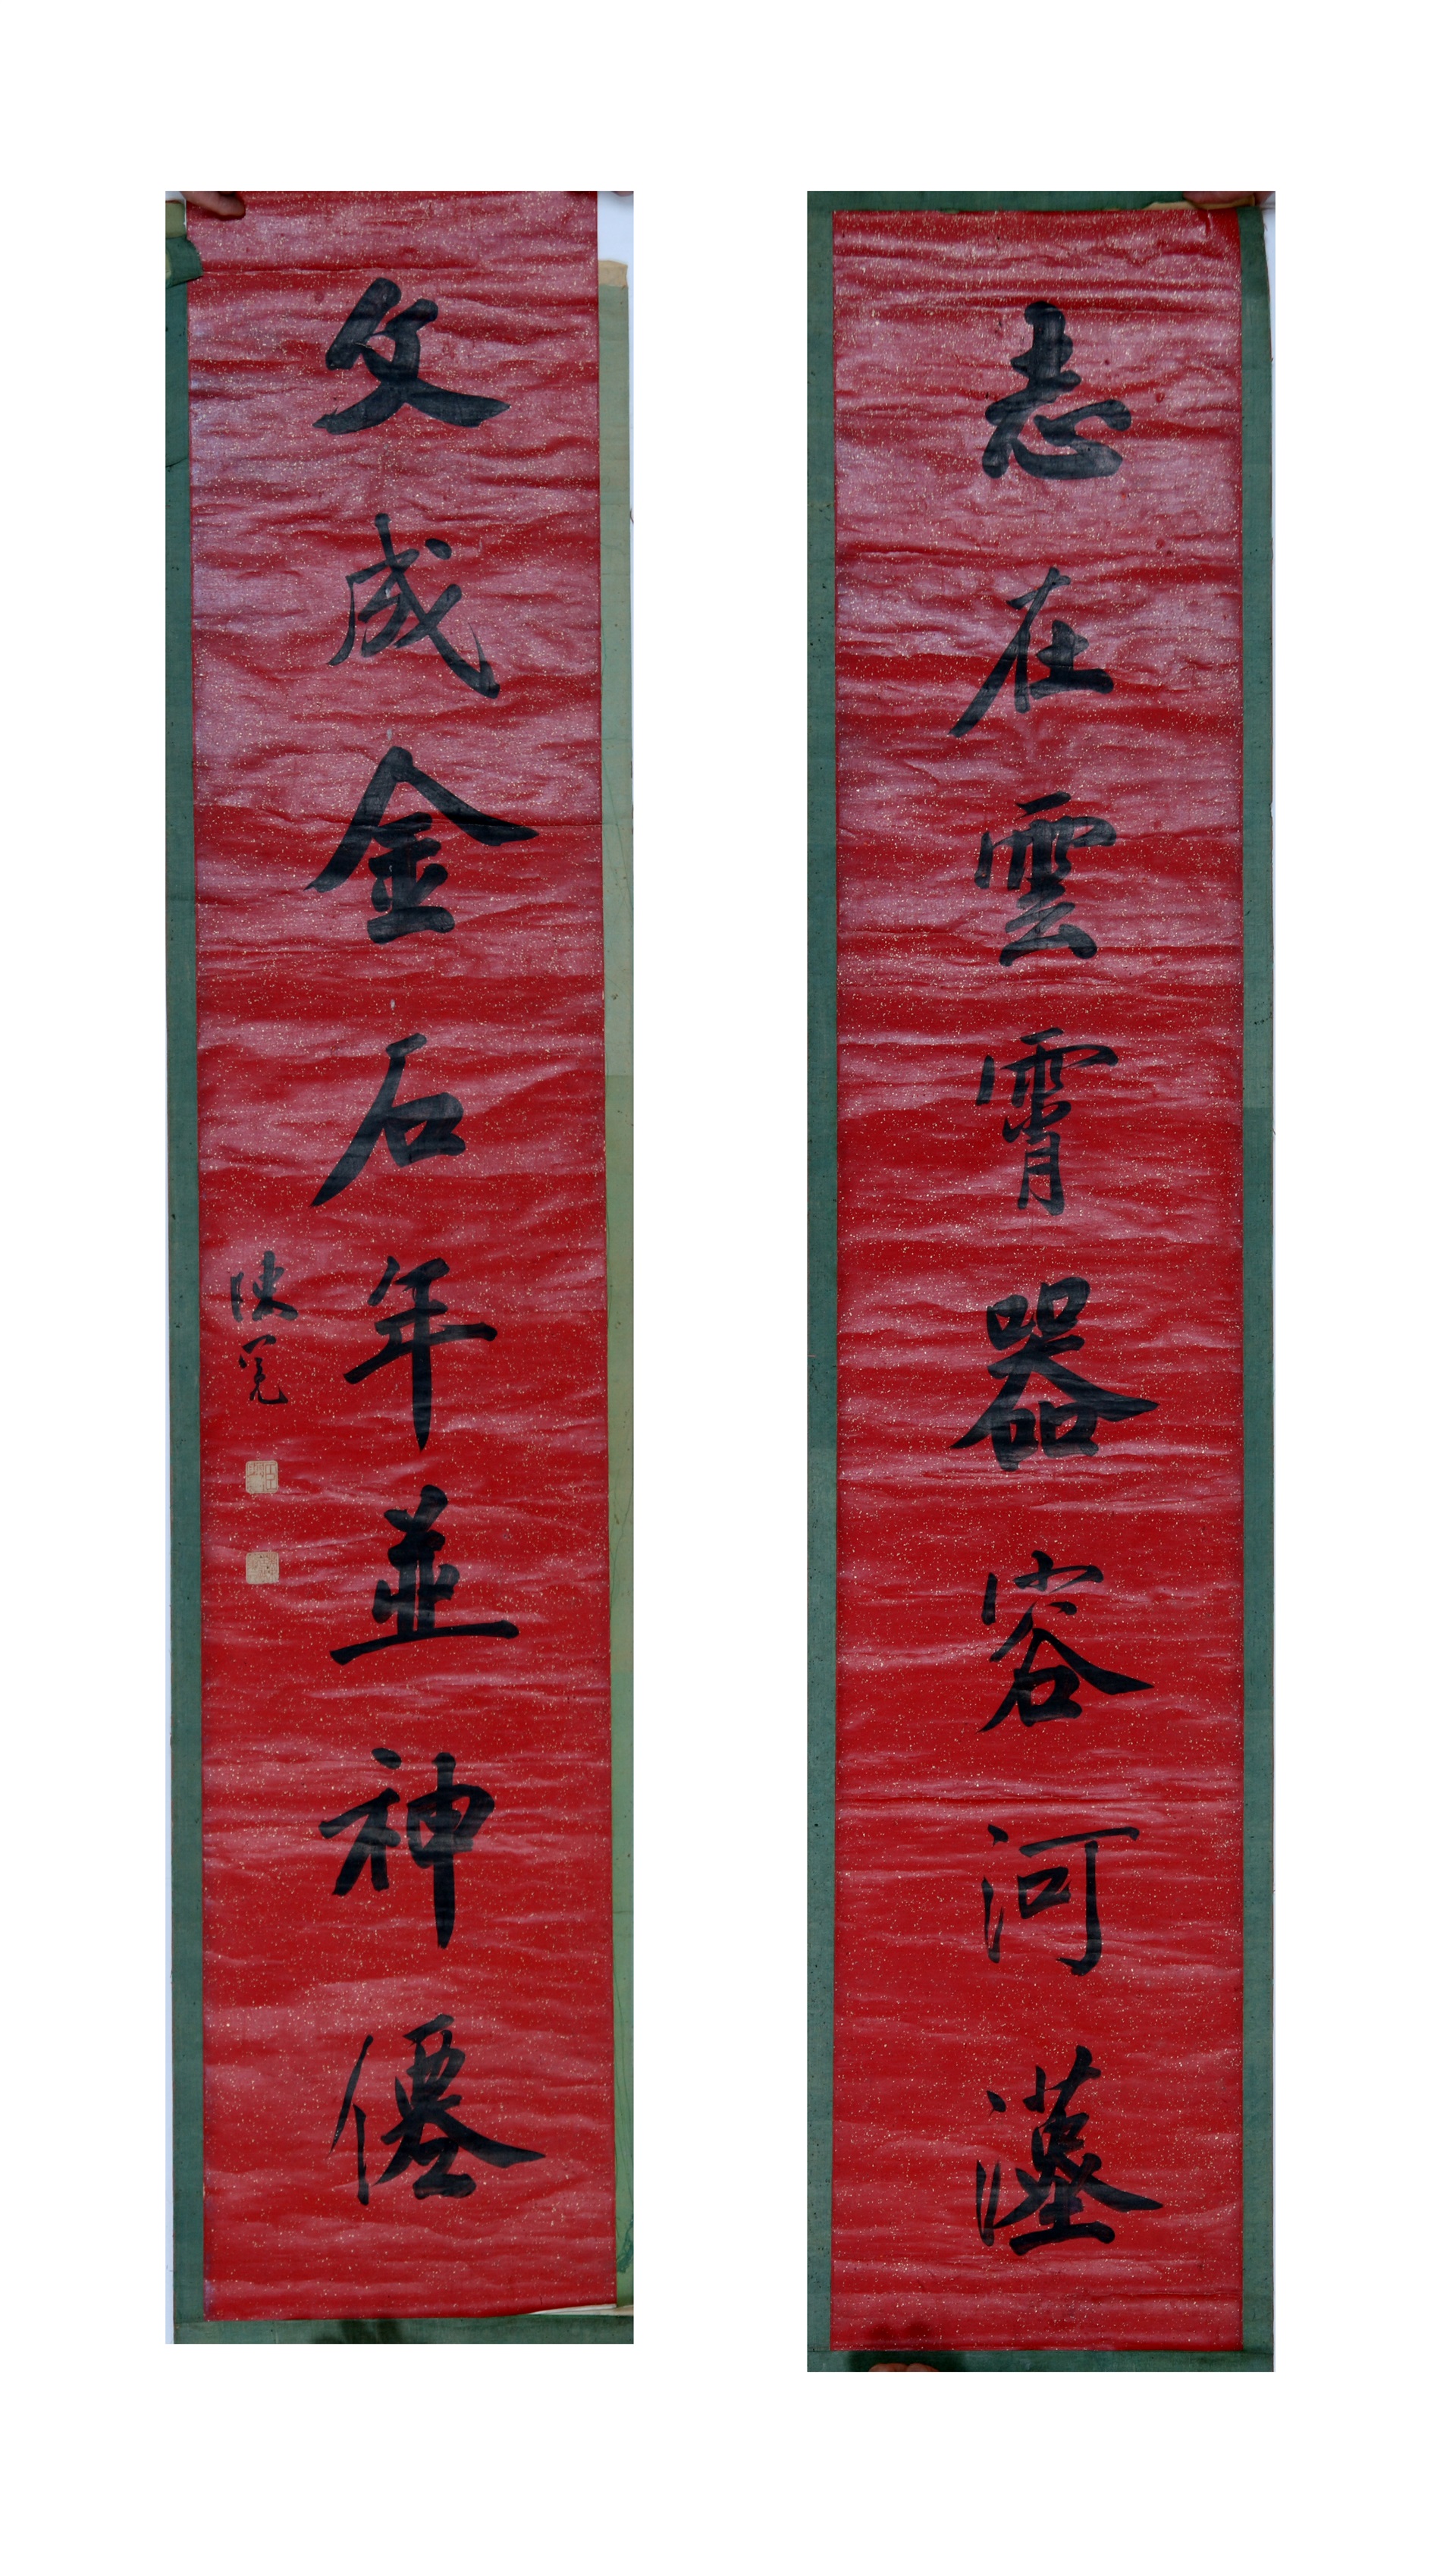 志在雲霄器容河漢
文成金石年並神僊
陳冕